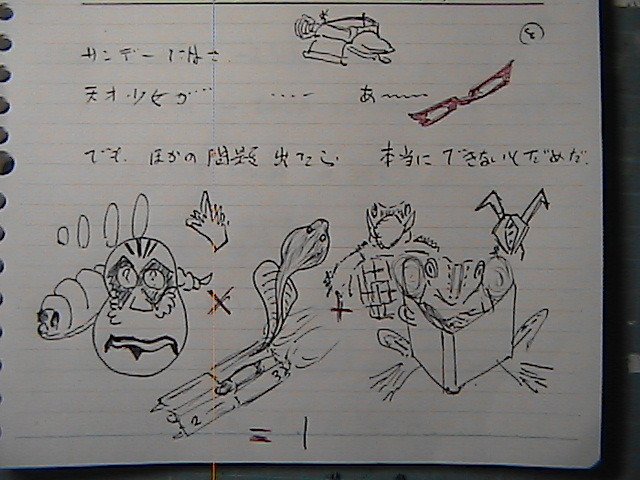 サンデーにはさ
天才少女が‥ ‥‥ あ〜〜
でも、ほかの問題出たら 本当にできないとだめだ.
× +
= 1